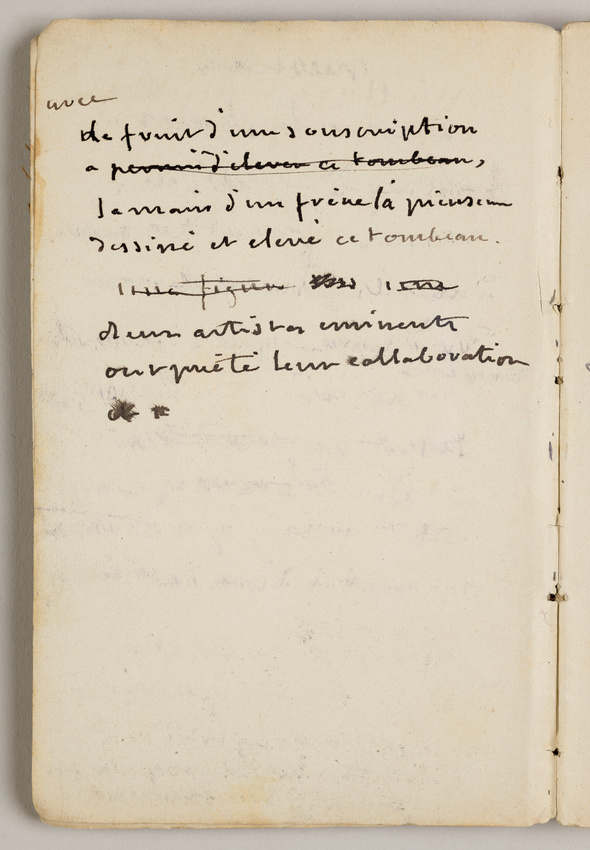 avec
le fruit d'une souscription
a permis d'élever ce tombeau,
la main d'un frère l'a pieusem
dessiné et elevé ce tombeau.
une figure
deux artistes eminents
ont prété leur collaboration
de